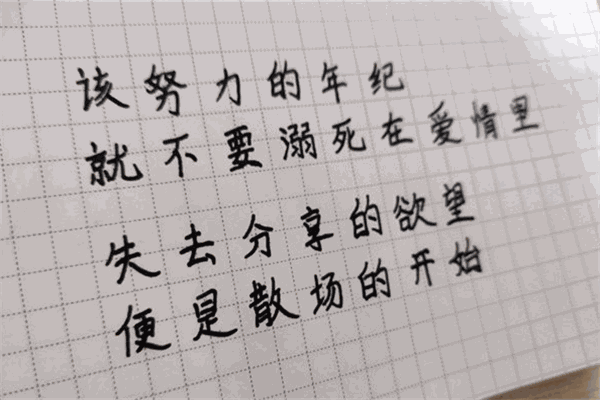 该努力的年纪
就不要溺死在爱情里
失去分享的欲望
便是散场的开始